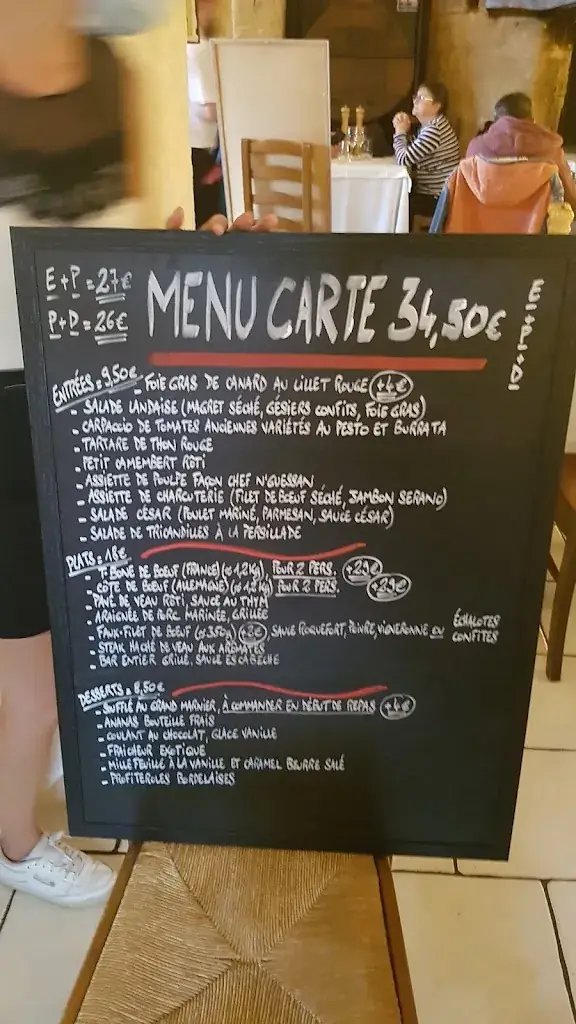 E+P = 27€
P+D = 26€
MENU CARTE 34,50€
E+P+D
ENTRÉES = 9,50€
- FOIE GRAS DE CANARD AU LILLET ROUGE +4€
- SALADE LANDAISE (MAGRET SÉCHÉ, GÉSIERS CONFITS, FOIE GRAS)
- CARPACCIO DE TOMATES ANCIENNES VARIÉTÉS AU PESTO ET BURRATA
- TARTARE DE THON ROUGE
- PETIT CAMEMBERT RÔTI
- ASSIETTE DE POULPE FAÇON CHEF N'GUESSAN
- ASSIETTE DE CHARCUTERIE (FILET DE BOEUF SÉCHÉ, JAMBON SERANO)
- SALADE CÉSAR (POULET MARINÉ, PARMESAN, SAUCE CÉSAR)
- SALADE DE TRICANDILLES À LA PERSILLADE
PLATS = 18€
- T-BONE DE BOEUF (FRANCE) (≃ 1,2 KG) POUR 2 PERS. +29€
- CÔTE DE BOEUF (ALLEMAGNE) (≃ 1,2 KG) POUR 2 PERS. +29€
- PAVÉ DE VEAU RÔTI, SAUCE AU THYM
- ARAIGNÉE DE PORC MARINÉE, GRILLÉE
- FAUX-FILET DE BOEUF (≃ 350g) +2€ SAUCE ROQUEFORT, POIVRE, VIGNERONNE OU ÉCHALOTES CONFITES
- STEAK HACHÉ DE VEAU AUX AROMATES
- BAR ENTIER GRILLÉ, SAUCE ESCABÈCHE
DESSERTS = 8,50€
- SOUFFLÉ AU GRAND MARNIER, À COMMANDER EN DÉBUT DE REPAS +4€
- ANANAS BOUTEILLE FRAIS
- COULANT AU CHOCOLAT, GLACE VANILLE
- FRAICHEUR EXOTIQUE
- MILLEFEUILLE À LA VANILLE ET CARAMEL BEURRE SALÉ
- PROFITEROLES BORDELAISES